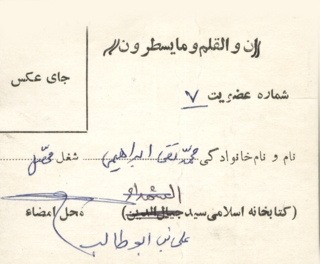 ((ن والقلم ومایسطرون))
جای عکس
شماره عضویت ۷
نام و نام خانوادگی محمد تقی ابراهیمی شغل محصل
الشهداء
(کتابخانه اسلامی سید جمال الدین) محل امضاء
علی بن ابوطالب